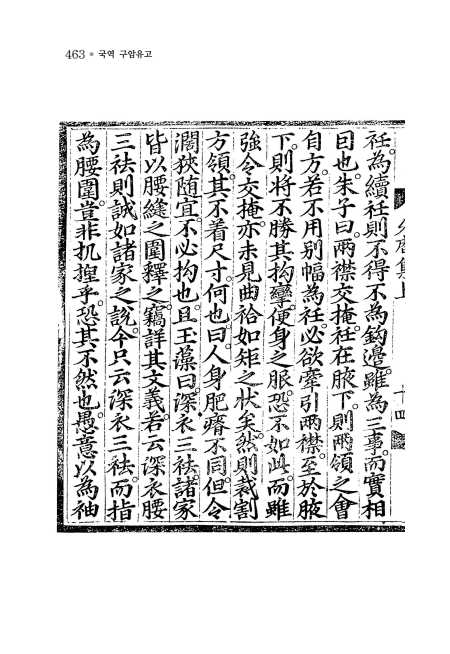 463 ● 국역 구암유고
衽為續衽則不得不為鉤邊。雖為三事。而實相
因也。朱子曰。兩襟交掩。衽在腋下。則兩領之會
自方。若不用别幅為衽。必欲牽引兩襟。至於腋
下。則将不勝其拘攣。便身之服。恐不如此。而雖
強令交掩。亦未見曲袷如矩之狀矣。然則裁割
方領。其不着尺寸。何也。曰。人身肥瘠不同。但令
濶狹随宜。不必拘也。且玉藻曰。深衣三袪。諸家
皆以腰縫之圍釋之。竊詳其文義。若云深衣腰
三袪。則誠如諸家之說。今只云深衣三袪。而指
為腰圍。豈非扤揑乎。恐其不然也。愚意以為袖
十四